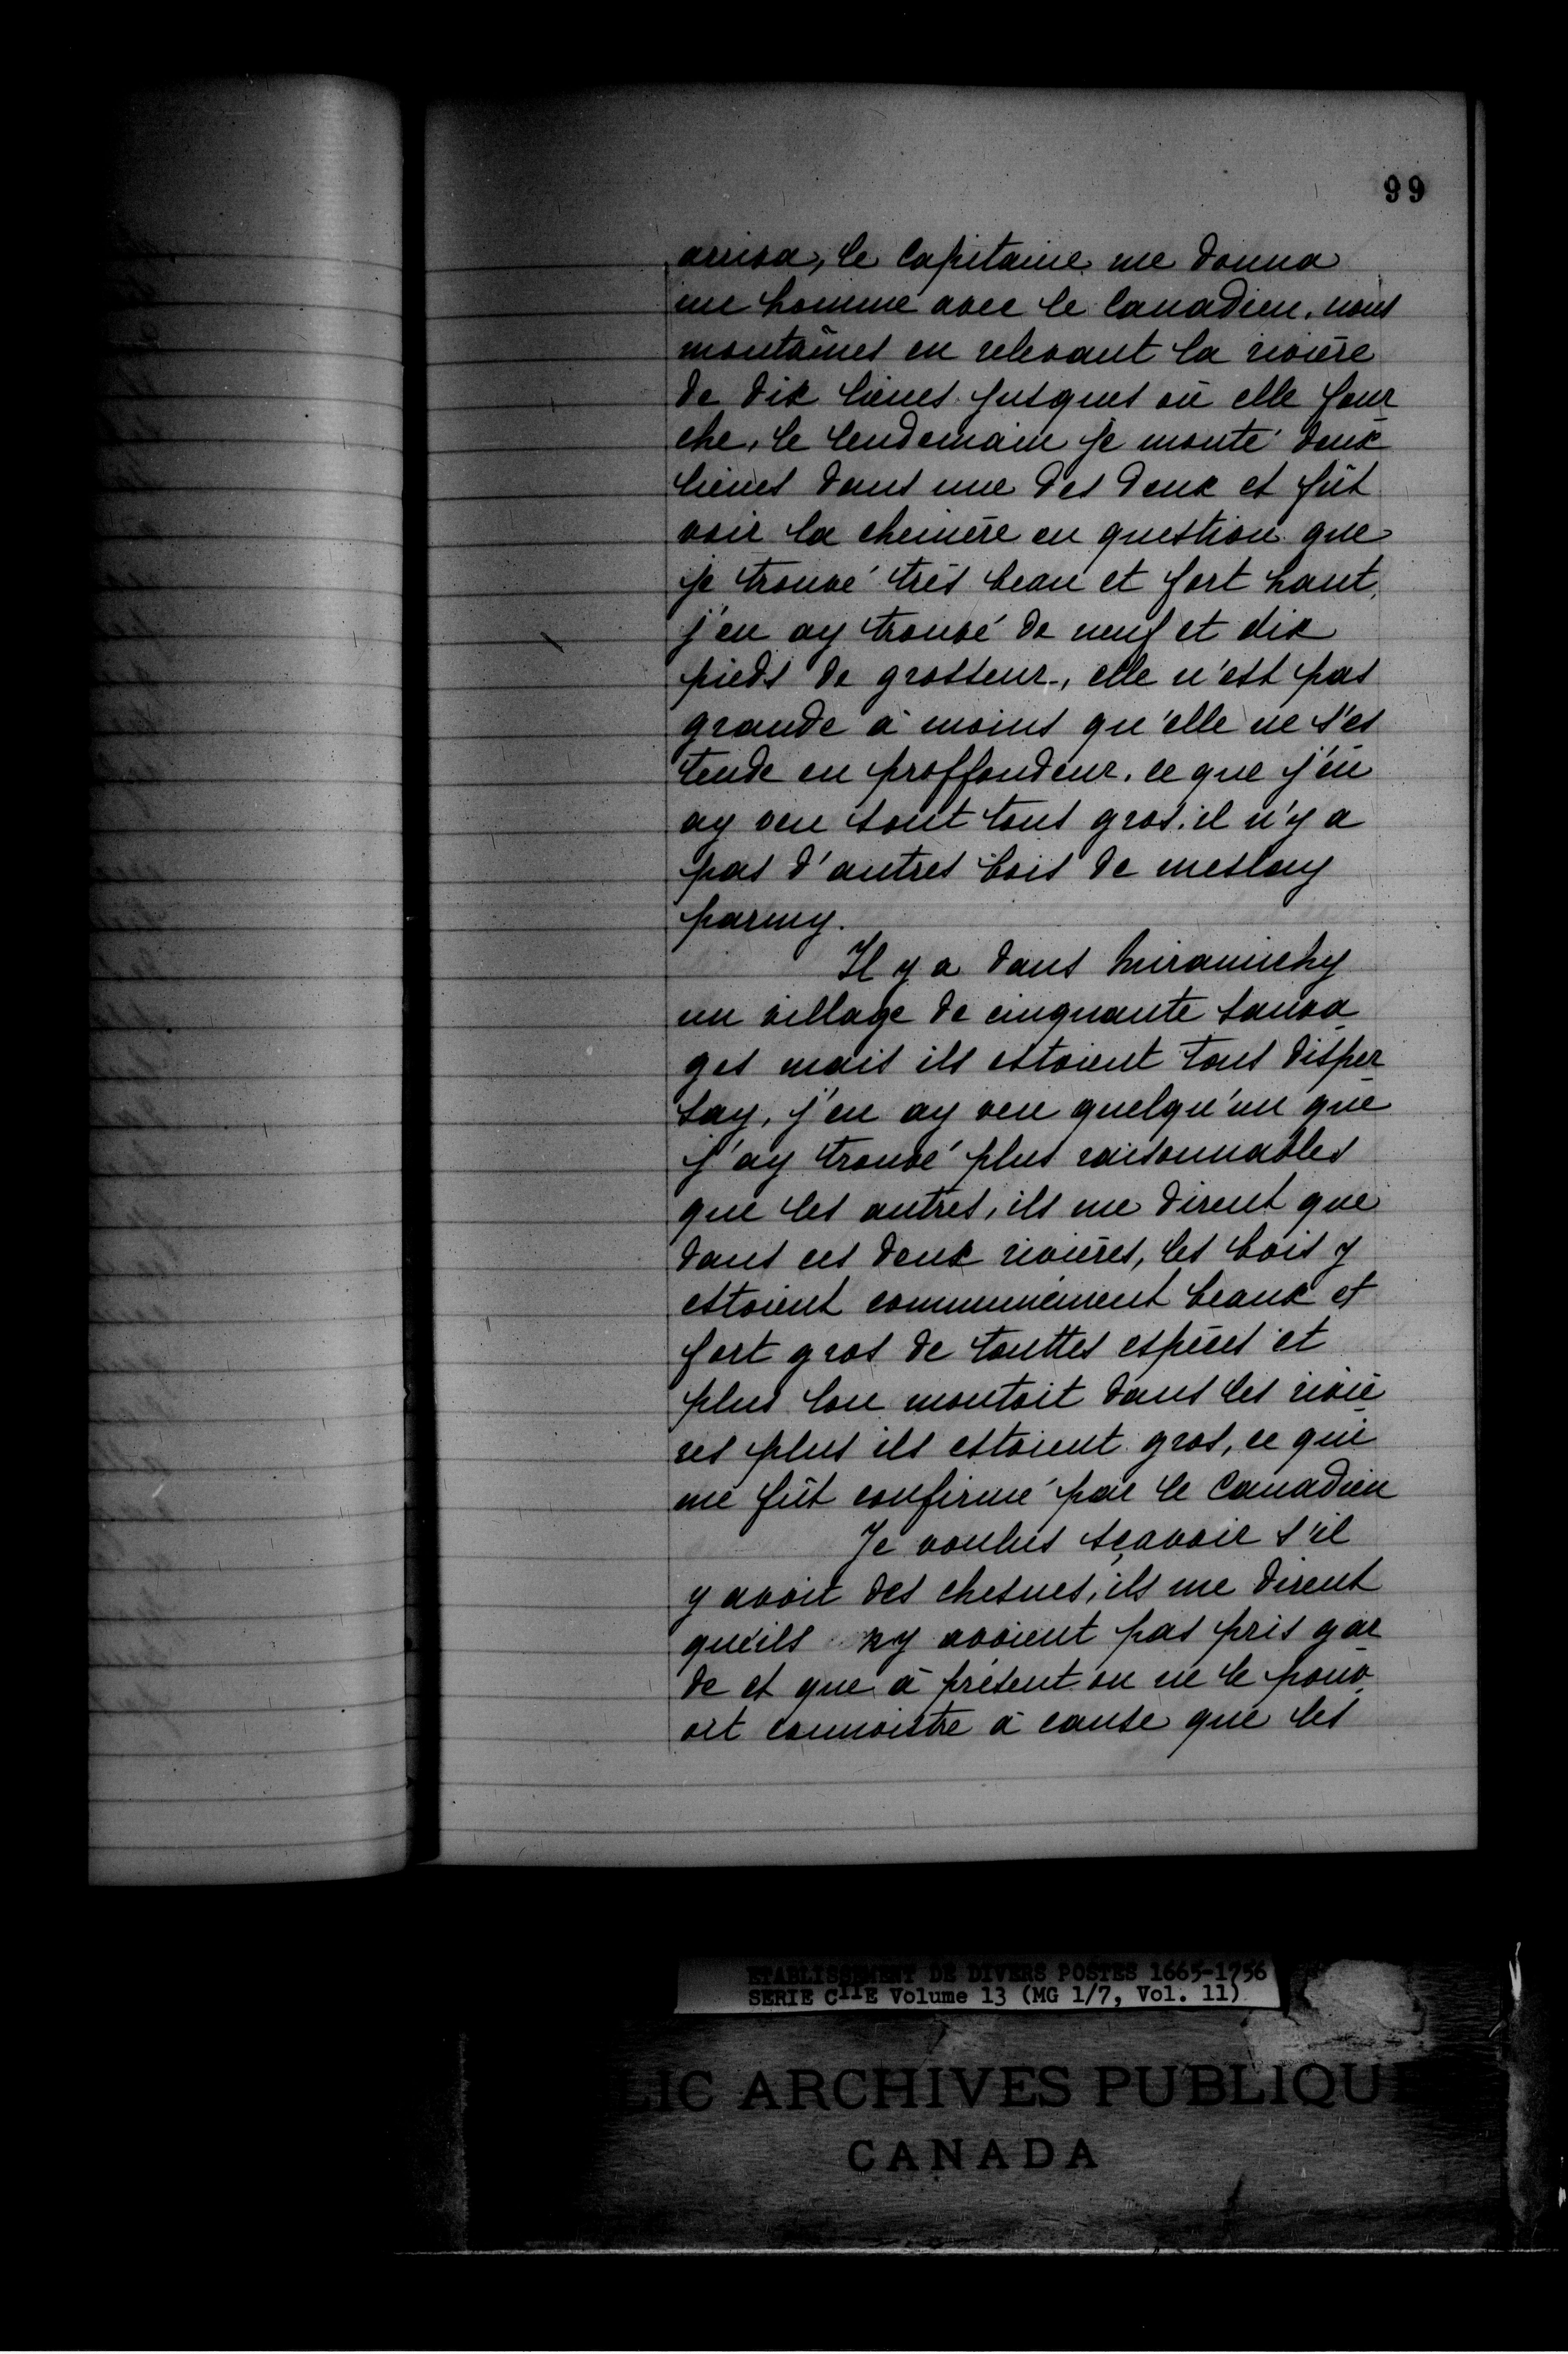 99
arriva, le Capitaine me donna
un homme avec le Canadien. nous
montâmes en relevant la rivière
de dix lieues jusques où elle four
che, le lendemain je monté deux
lieues dans une des deux et fût
voir la chenière en question que
je trouvé très beau et fort haut,
j'en ay trouvé de neuf et dix
pieds de grosseur, elle n'est pas
grande à moins qu'elle ne s'es
tende en proffondeur. ce que j'en
ay veu sont tous gros. il n'y a
pas d'autres bois de meslay
parmy.
Il y a dans Miramichy
un village de cinquante sauva
ges mais ils estoient tous disper
say, j'en ay veu quelqu'un que
j'ay trouvé plus raisonnables
que les autres, ils me dirent que
dans ces deux rivières, les bois y
estoient communément beaux et
fort gros de touttes espèces et
plus lon montoit dans les riviè
res plus ils estoient gros, ce qui
me fût confirmé par le Canadien
Je voulus sçavoir s'il
y avoit des chesnes, ils me dirent
qu'ils ny avoient pas pris gar
de et que à présent on ne le pouv
oit connoistre à cause que les
ETABLISSEMENT DE DIVERS POSTES 1665-1756
SERIE C11E Volume 13 (MG 1/7, Vol. 11)
LIC ARCHIVES PUBLIQUE
CANADA